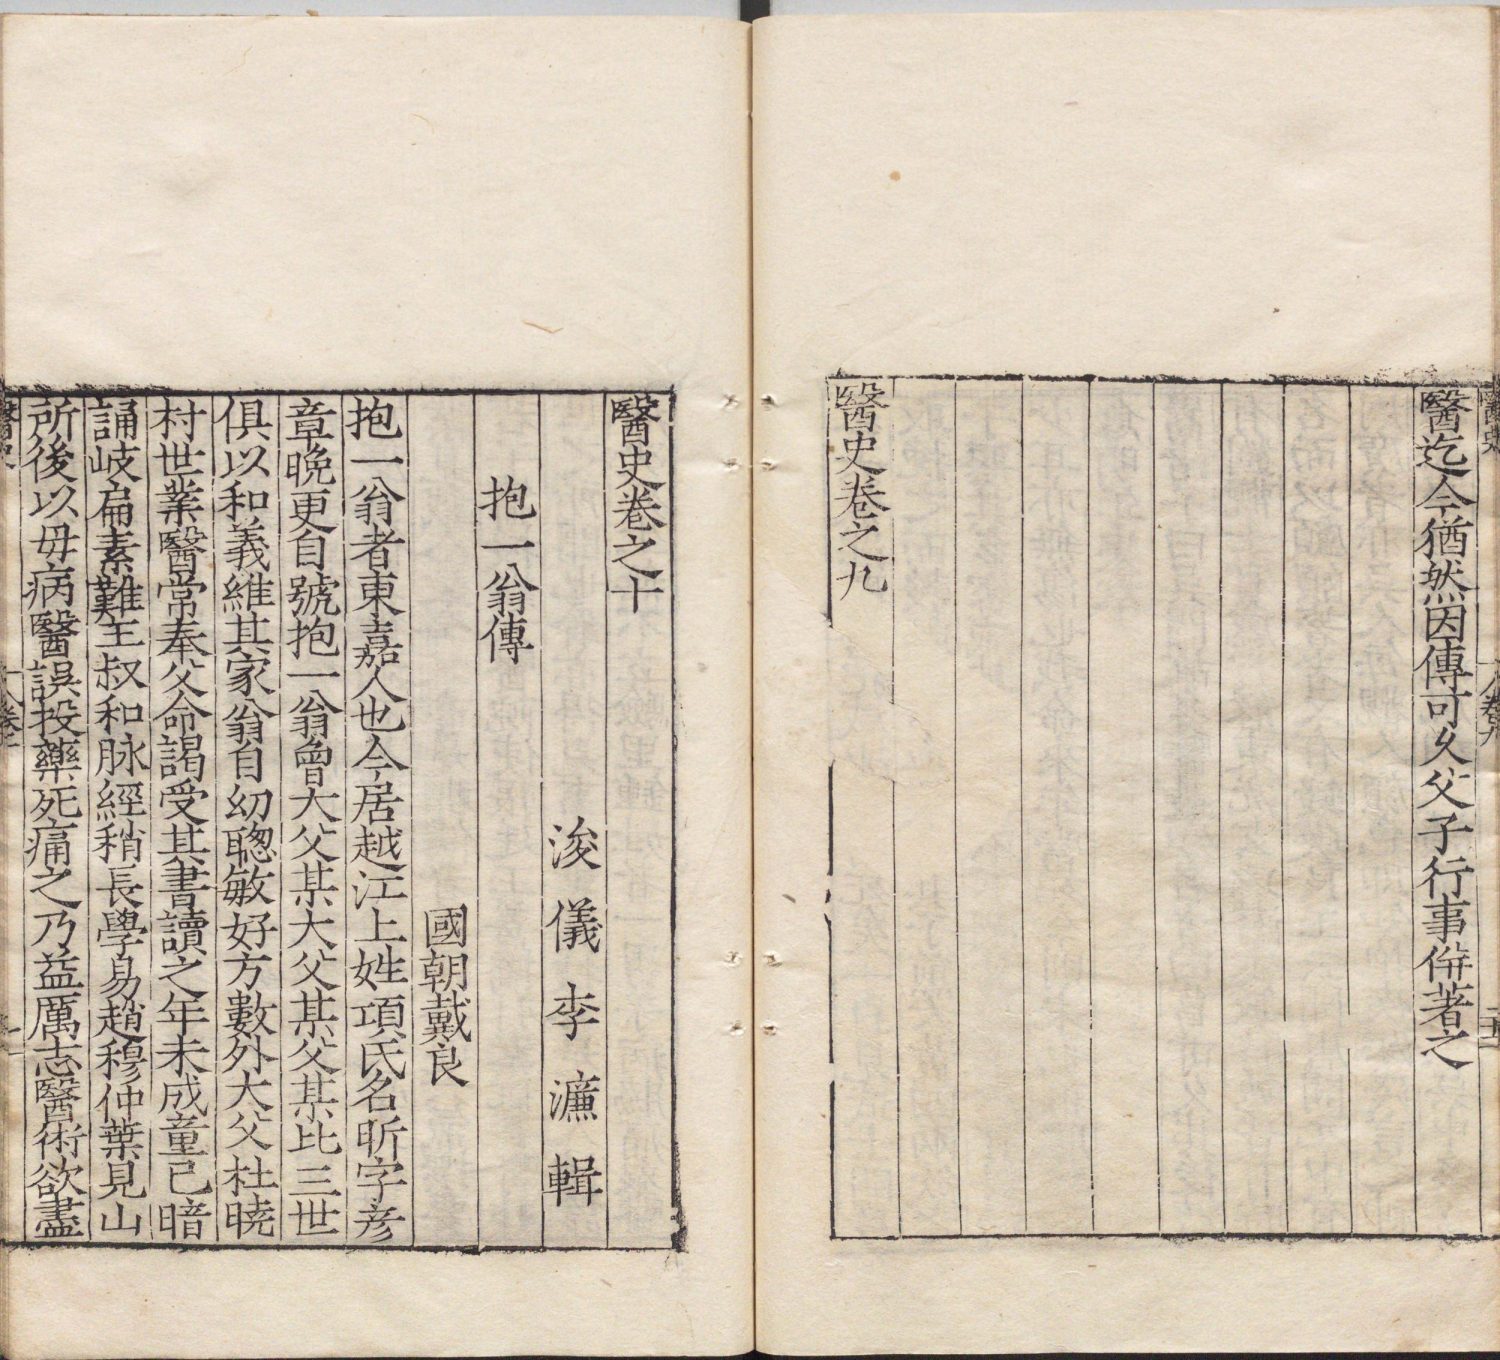 醫迄今猶然因傳可久父子行事併著之
醫史卷之九
醫史卷之十
浚儀李濂輯
抱一翁傳
國朝戴良
抱一翁者東嘉人也今居越江上姓項氏名昕字彦
章晚更自號抱一翁曾大父某大父某父某比三世
俱以和義維其家翁自幼聰敏好方數外大父杜曉
村世業醫常奉父命謁受其書讀之年未成童已暗
誦岐扁素難王叔和脉經稍長學易趙穆仲葉見山
所後以母病醫誤投藥死痛之乃益厲志醫術欲盡